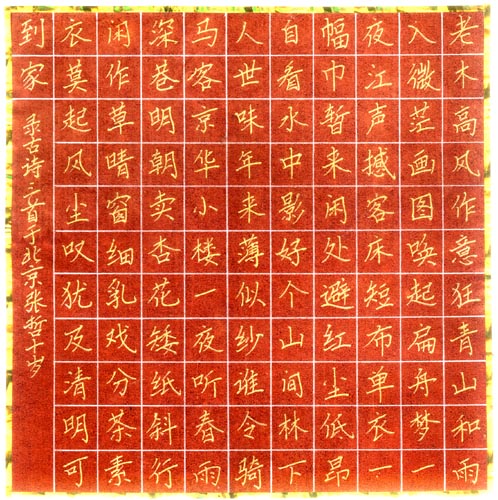 老木高风作意狂青山和雨
入微茫画图唤起扁舟梦一
夜江声撼客床短布单衣一
幅巾暂来闲处避红尘低昂
自看水中影好个山间林下
人世味年来薄似纱谁令骑
马客京华小楼一夜听春雨
深巷明朝卖杏花矮纸斜行
闲作草晴窗细乳戏分茶素
衣莫起风尘叹犹及清明可
到家
录古诗三首于北京张哲十岁